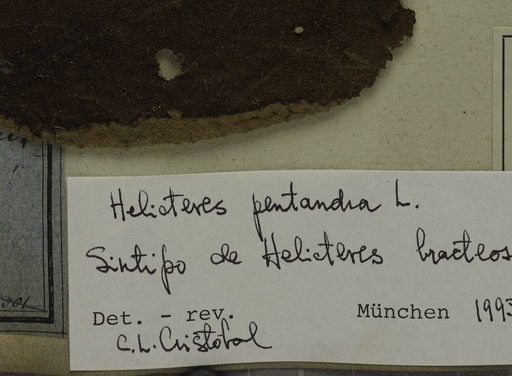 Helicteres pentandra L.
Sintipo de Helicteres bracteos
Det. - rev. München 1993
C.L. Cristóbal